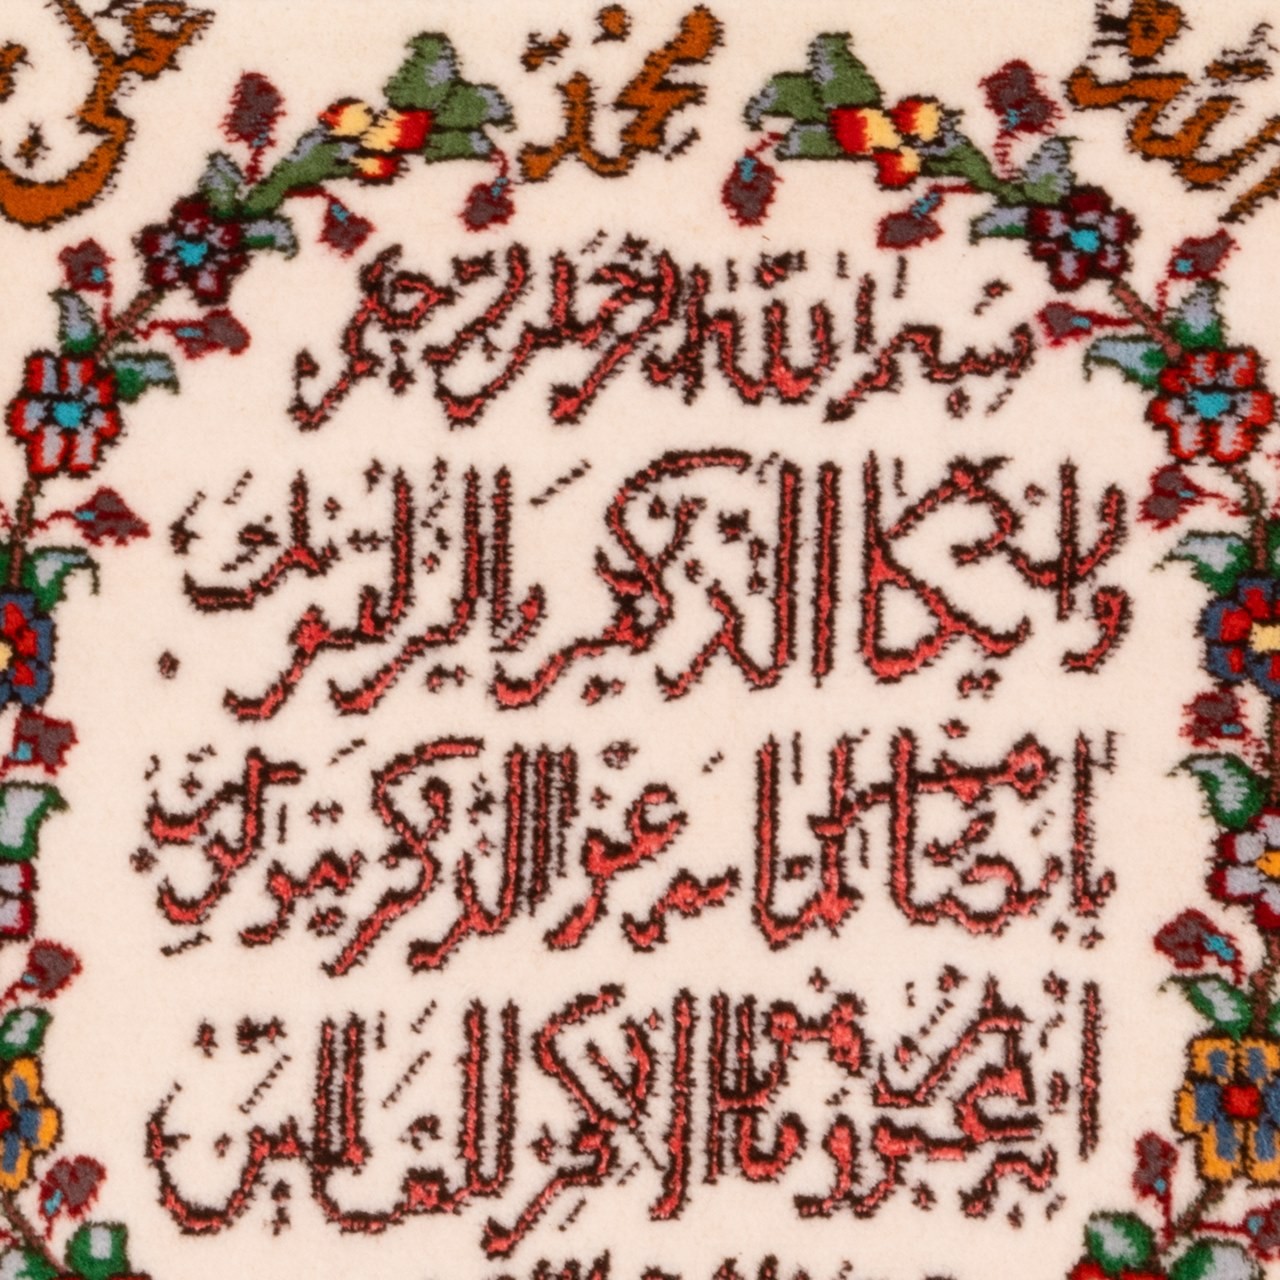 الله محمد علی
بسم الله الرحمن الرحیم
وان یکاد الذین کفروا لیزلقونک
بابصارهم لما سمعوا الذکر ویقولون
انه لمجنون وما هو الا ذکر للعالمین